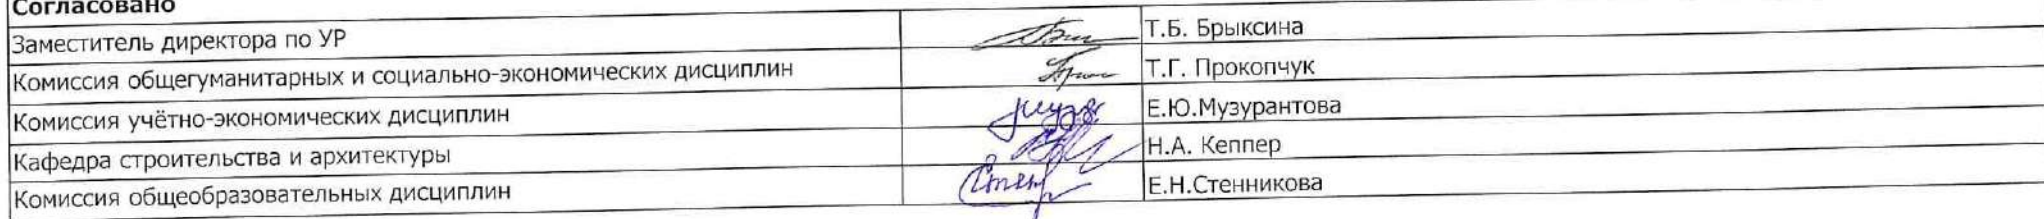 Согласовано
Заместитель директора по УР Т.Б. Брыксина
Комиссия общегуманитарных и социально-экономических дисциплин Т.Г. Прокопчук
Комиссия учётно-экономических дисциплин Е.Ю.Музурантова
Кафедра строительства и архитектуры Н.А. Кеппер
Комиссия общеобразовательных дисциплин Е.Н.Стенникова